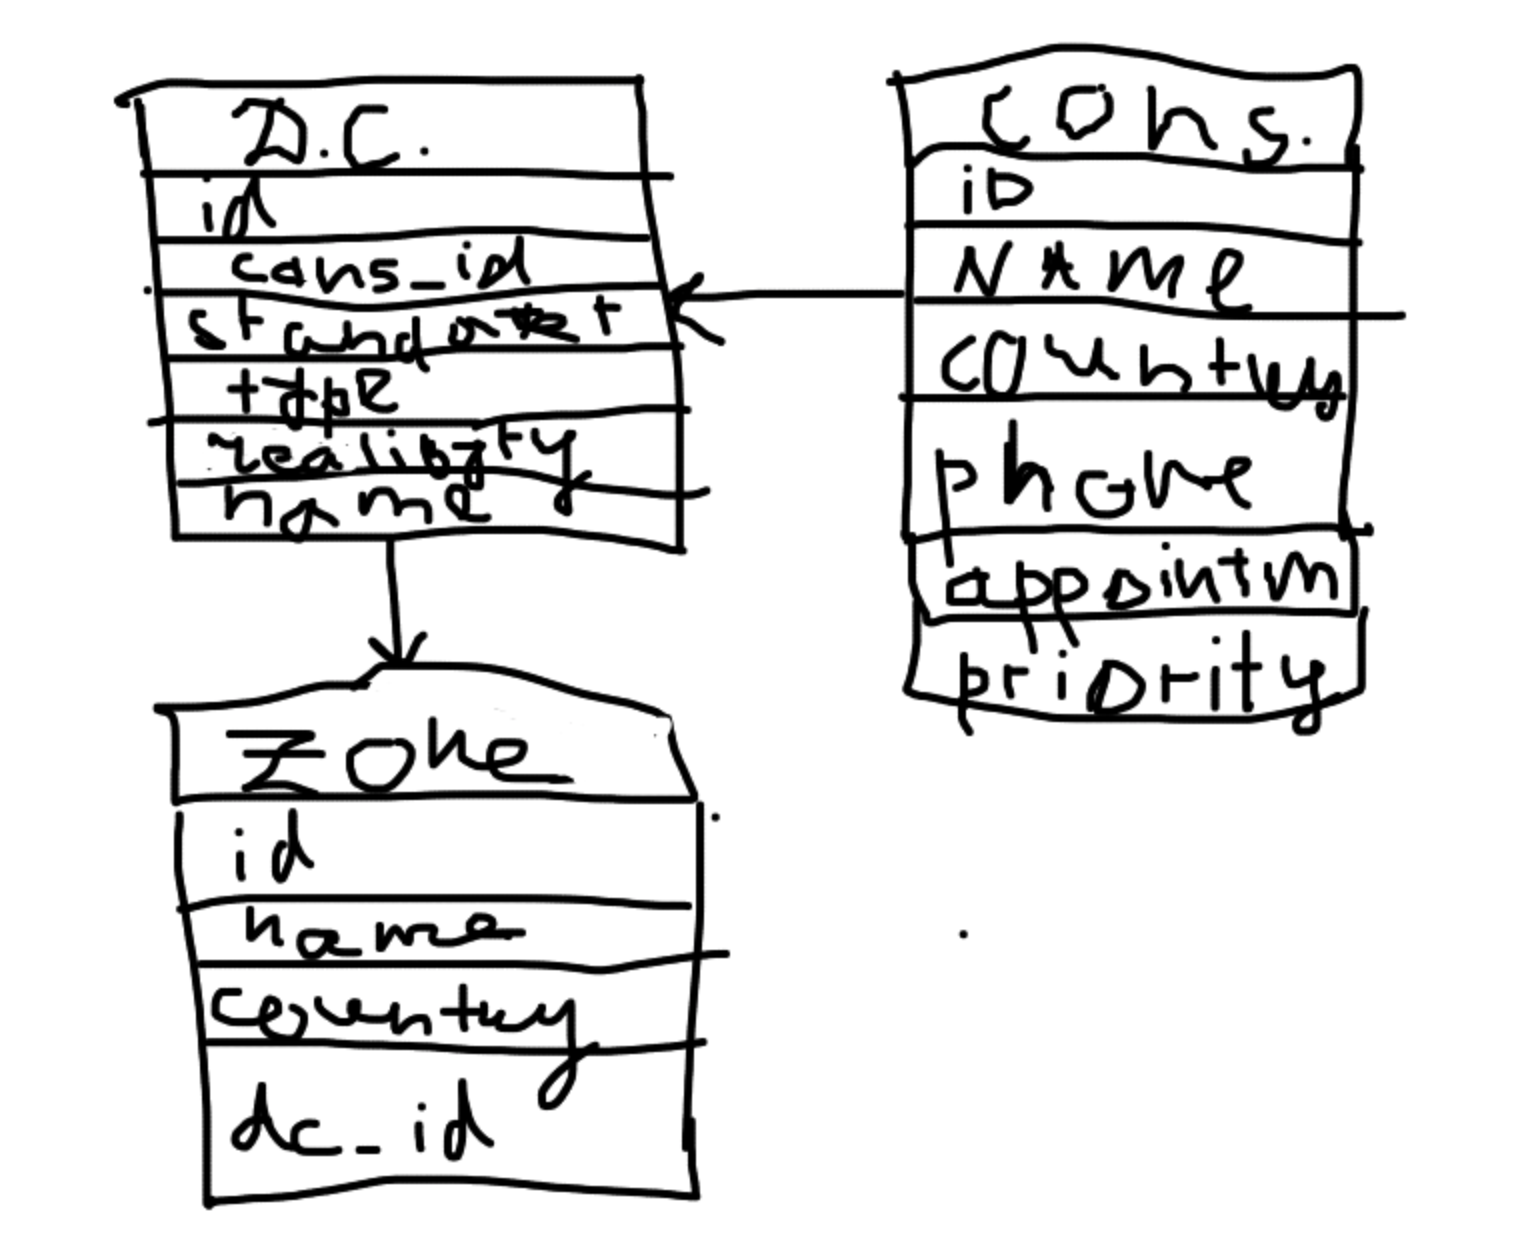 D.C.
id
cans_id
type
name
Cons.
iD
NAme
country
phone
appointm
priority
Zone
id
name
country
dc_id